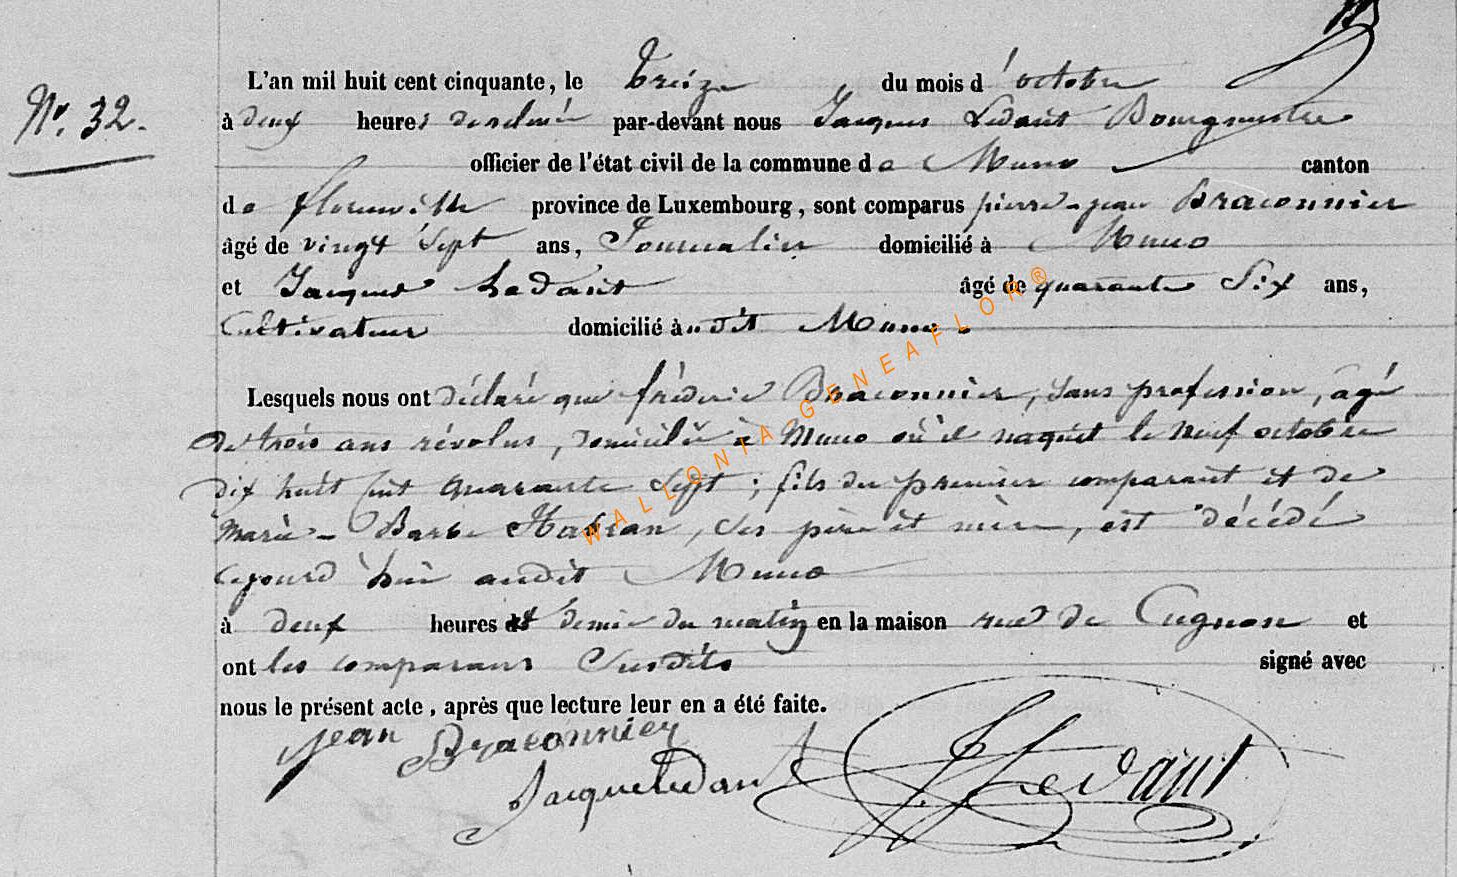 N°. 32.
L'an mil huit cent cinquante, le treize du mois d'octobre
à deux heures de relevée par-devant nous Jacques Ledant Bourgmestre
officier de l'état civil de la commune de Muno canton
de florenville province de Luxembourg, sont comparus pierre-jean Braconnier
âgé de vingt sept ans, Journalier domicilié à Muno
et Jacques Ledant âgé de quarante Six ans,
Cultivateur domicilié à udit Muno.
Lesquels nous ont déclaré que fréderic Braconnier, sans profession, âgé
de trois ans révolus, domicilié à Muno où il naquit le neuf octobre
dix huit cent quarante Sept ; fils du premier comparant et de
Marie-Barbe Habran, ses père et mère, est décédé
cejourd'hui audit Muno
à deux heures et demie du matin en la maison rue de Cugnon et
ont les comparans Susdits signé avec
nous le présent acte, après que lecture leur en a été faite.
jean Braconnier
Jacque Ledant
J Ledant
WALLONIA GENEAFLOR®